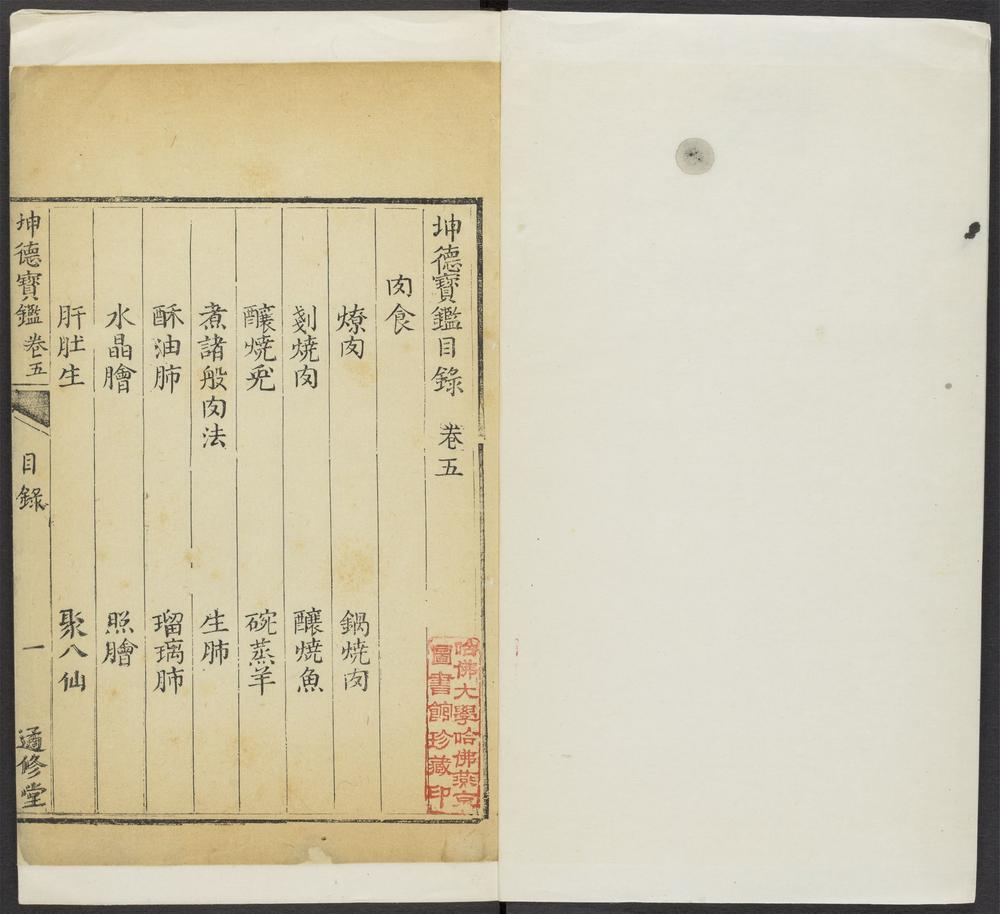 坤德寶鑑目錄 卷五
肉食
燎肉 鍋燒肉
剗燒肉 釀燒魚
釀燒兎 碗蒸羊
煮諸般肉法 生肺
酥油肺 瑠璃肺
水晶膾 照膾
肝肚生 聚八仙
坤德寶鑑 卷五 目錄 一 遹修堂
哈佛大學哈佛燕京
圖書館珍藏印